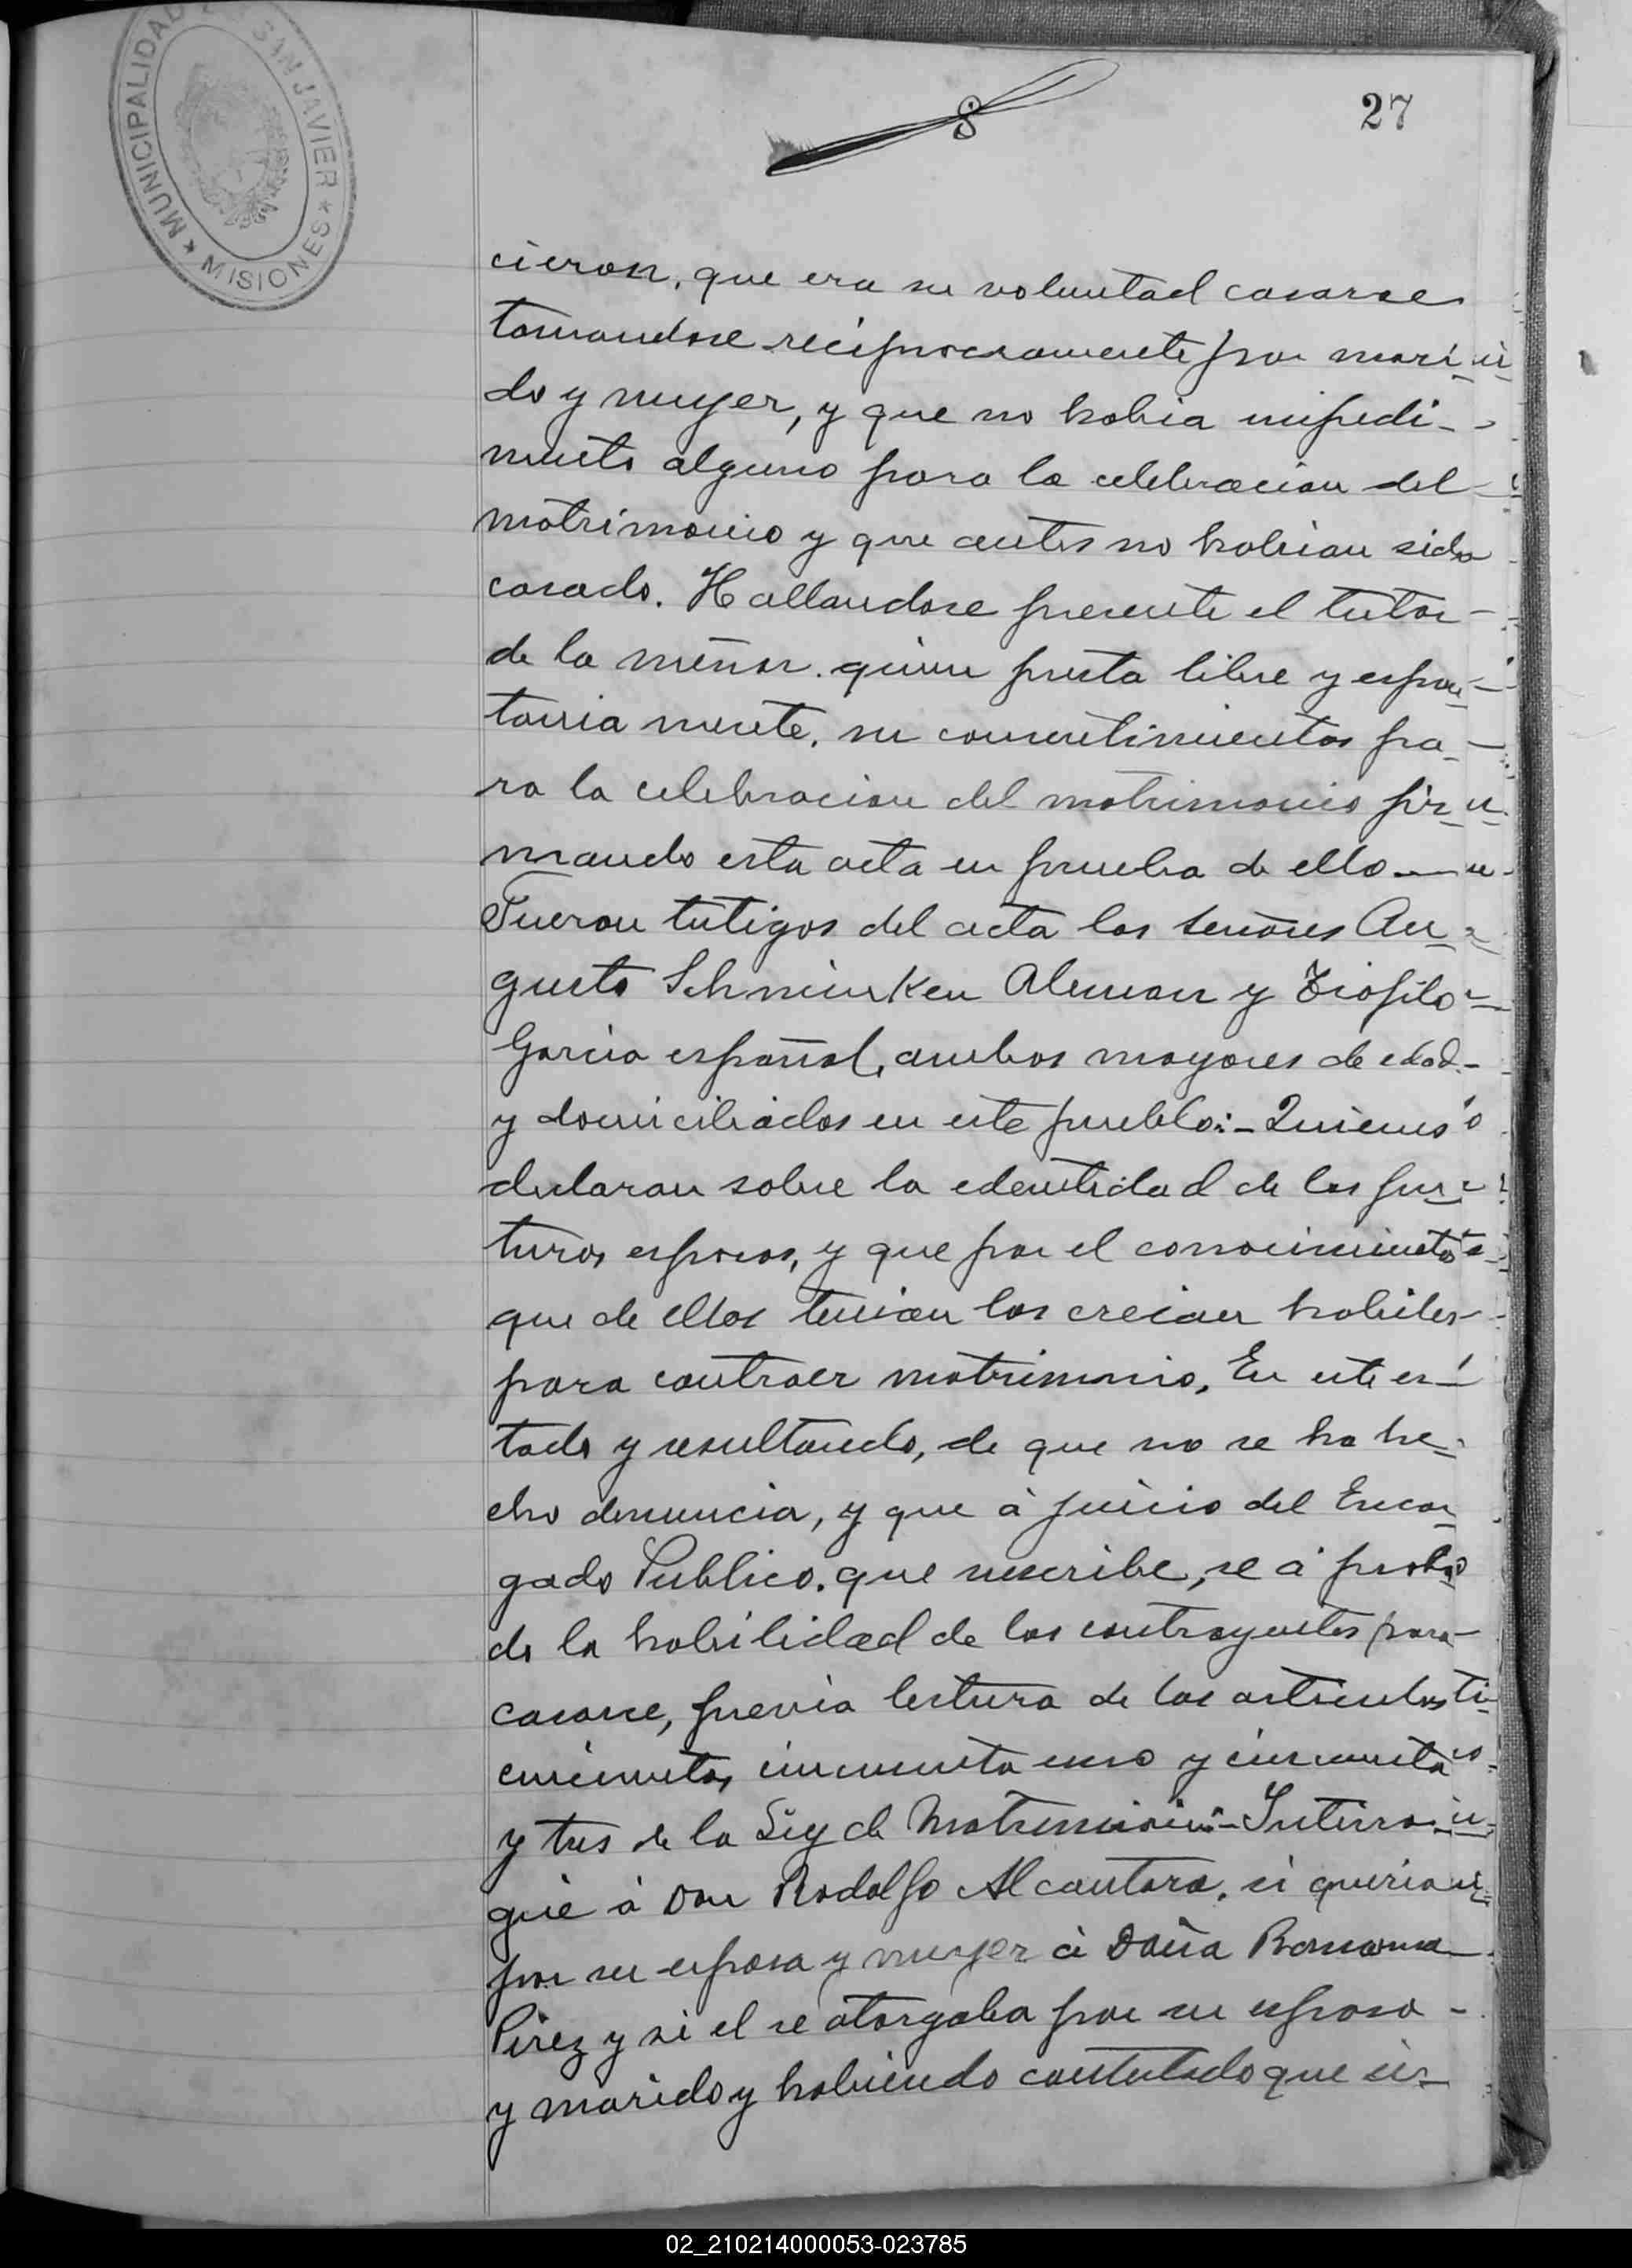 MUNICIPALIDAD DE SAN JAVIER
* MISIONES *
27
cieron, que era su voluntad casarse
tomandose reciprocramente por mari-
do y muger, y que no habia impedi-
mento alguno para la celebracion del
matrimonio y que antes no habian sido
casado. Hallandose presente el tutor
de la meñor. quien presta libre y espon-
tania mente, su consentimientos pa-
ra la celebracion del matrimonio fir-
mando esta acta en prueba de ello.—
Fueron testigos del acta los señores Au-
gusto Schmiurken Aleman y Tiofilo
Garcia español, ambos mayores de edad-
y domiciliados en este pueblo:- Quienes
declaran sobre la edentidad de los fu-
turos esposos, y que por el conocimiento
que de ellos tenian los creian habiles
para contraer matrimonio, En este es-
tado y resultando, de que no se ha he-
cho denuncia, y que à juicio del Encar
gado Publico. que suscribe, se à proba
do la habilidad de los contrayentes para
casarse, previa lectura de los articulos
cincuenta, cincuenta uno y cincuenta
y tres de la Ley de Matrimonio- Interro-
gué à Don Rodolfo Alcantara. si queria
por su esposa y muger à Doña Ramona
Pirez y si el se otorgaba por su esposo -
y marido y habiendo contestado que si-
02_210214000053-023785